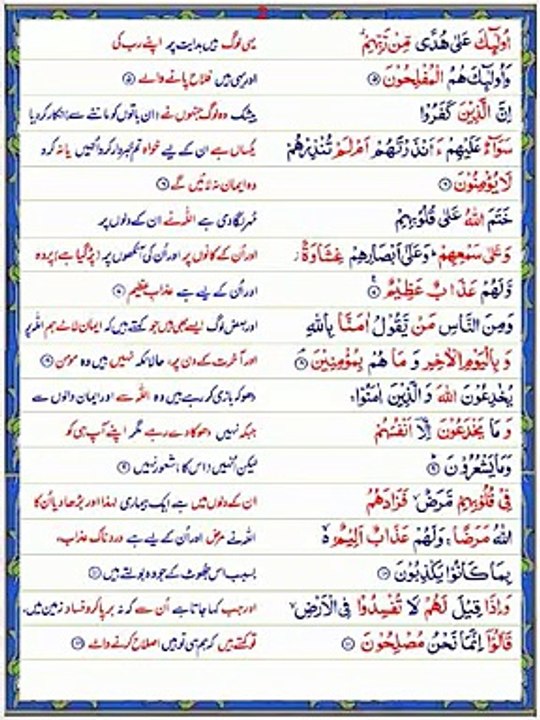 اُولٰٓئِكَ عَلٰى هُدًى مِّنْ رَّبِّهِمْ ۗ یہی لوگ ہیں ہدایت پر اپنے رب کی
وَاُولٰٓئِكَ هُمُ الْمُفْلِحُوْنَ ۝۵ اور یہی ہیں فلاح پانے والے ۝۵
اِنَّ الَّذِيْنَ كَفَرُوْا بیشک وہ لوگ جنہوں نے (ان باتوں کو ماننے سے) انکار کردیا
سَوَآءٌ عَلَيْهِمْ ءَاَنْذَرْتَهُمْ اَمْ لَمْ تُنْذِرْهُمْ یکساں ہے ان کے لیے خواہ تم خبردار کرو انہیں یا نہ کرو
لَا يُؤْمِنُوْنَ ۝۶ وہ ایمان نہ لائیں گے ۝۶
خَتَمَ اللّٰهُ عَلٰى قُلُوْبِهِمْ مُہر لگا دی ہے اللہ نے ان کے دلوں پر
وَعَلٰى سَمْعِهِمْ ؕ وَعَلٰٓى اَبْصَارِهِمْ غِشَاوَةٌ ز اور اُن کے کانوں پر اور اُن کی آنکھوں پر (پڑ گیا ہے) پردہ
وَّلَهُمْ عَذَابٌ عَظِيْمٌ ۝۷ اور اُن کے لیے ہے عذابِ عظیم ۝۷
وَمِنَ النَّاسِ مَنْ يَّقُوْلُ اٰمَنَّا بِاللّٰهِ اور بعض لوگ ایسے بھی ہیں جو کہتے ہیں کہ ایمان لائے ہم اللہ پر
وَبِالْيَوْمِ الْاٰخِرِ وَمَا هُمْ بِمُؤْمِنِيْنَ ۝۸ اور آخرت کے دن پر، حالانکہ نہیں ہیں وہ مومن ۝۸
يُخٰدِعُوْنَ اللّٰهَ وَالَّذِيْنَ اٰمَنُوْا ۚ دھوکہ بازی کر رہے ہیں وہ اللہ سے اور ایمان والوں سے
وَمَا يَخْدَعُوْنَ اِلَّآ اَنْفُسَهُمْ جبکہ نہیں دھوکا دے رہے مگر اپنے آپ ہی کو
وَمَا يَشْعُرُوْنَ ۝۹ لیکن انہیں (اس کا) شعور نہیں ۝۹
فِيْ قُلُوْبِهِمْ مَّرَضٌ ۙ فَزَادَهُمُ ان کے دلوں میں ہے ایک بیماری لہٰذا اور بڑھا دیا اُن کا
اللّٰهُ مَرَضًا ۚ وَلَهُمْ عَذَابٌ اَلِيْمٌ ۢ ۙ اللہ نے مرض اور اُن کے لیے ہے دردناک عذاب،
بِمَا كَانُوْا يَكْذِبُوْنَ ۝۱۰ بسبب اس جھوٹ کے جو وہ بولتے ہیں ۝۱۰
وَاِذَا قِيْلَ لَهُمْ لَا تُفْسِدُوْا فِى الْاَرْضِ ۙ اور جب کہا جاتا ہے اُن سے کہ نہ برپا کرو فساد زمین میں،
قَالُوْٓا اِنَّمَا نَحْنُ مُصْلِحُوْنَ ۝۱۱ تو کہتے ہیں کہ ہم ہی تو ہیں اصلاح کرنے والے ۝۱۱